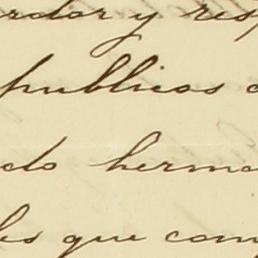 rdor y res
publicos
do herma
les que com